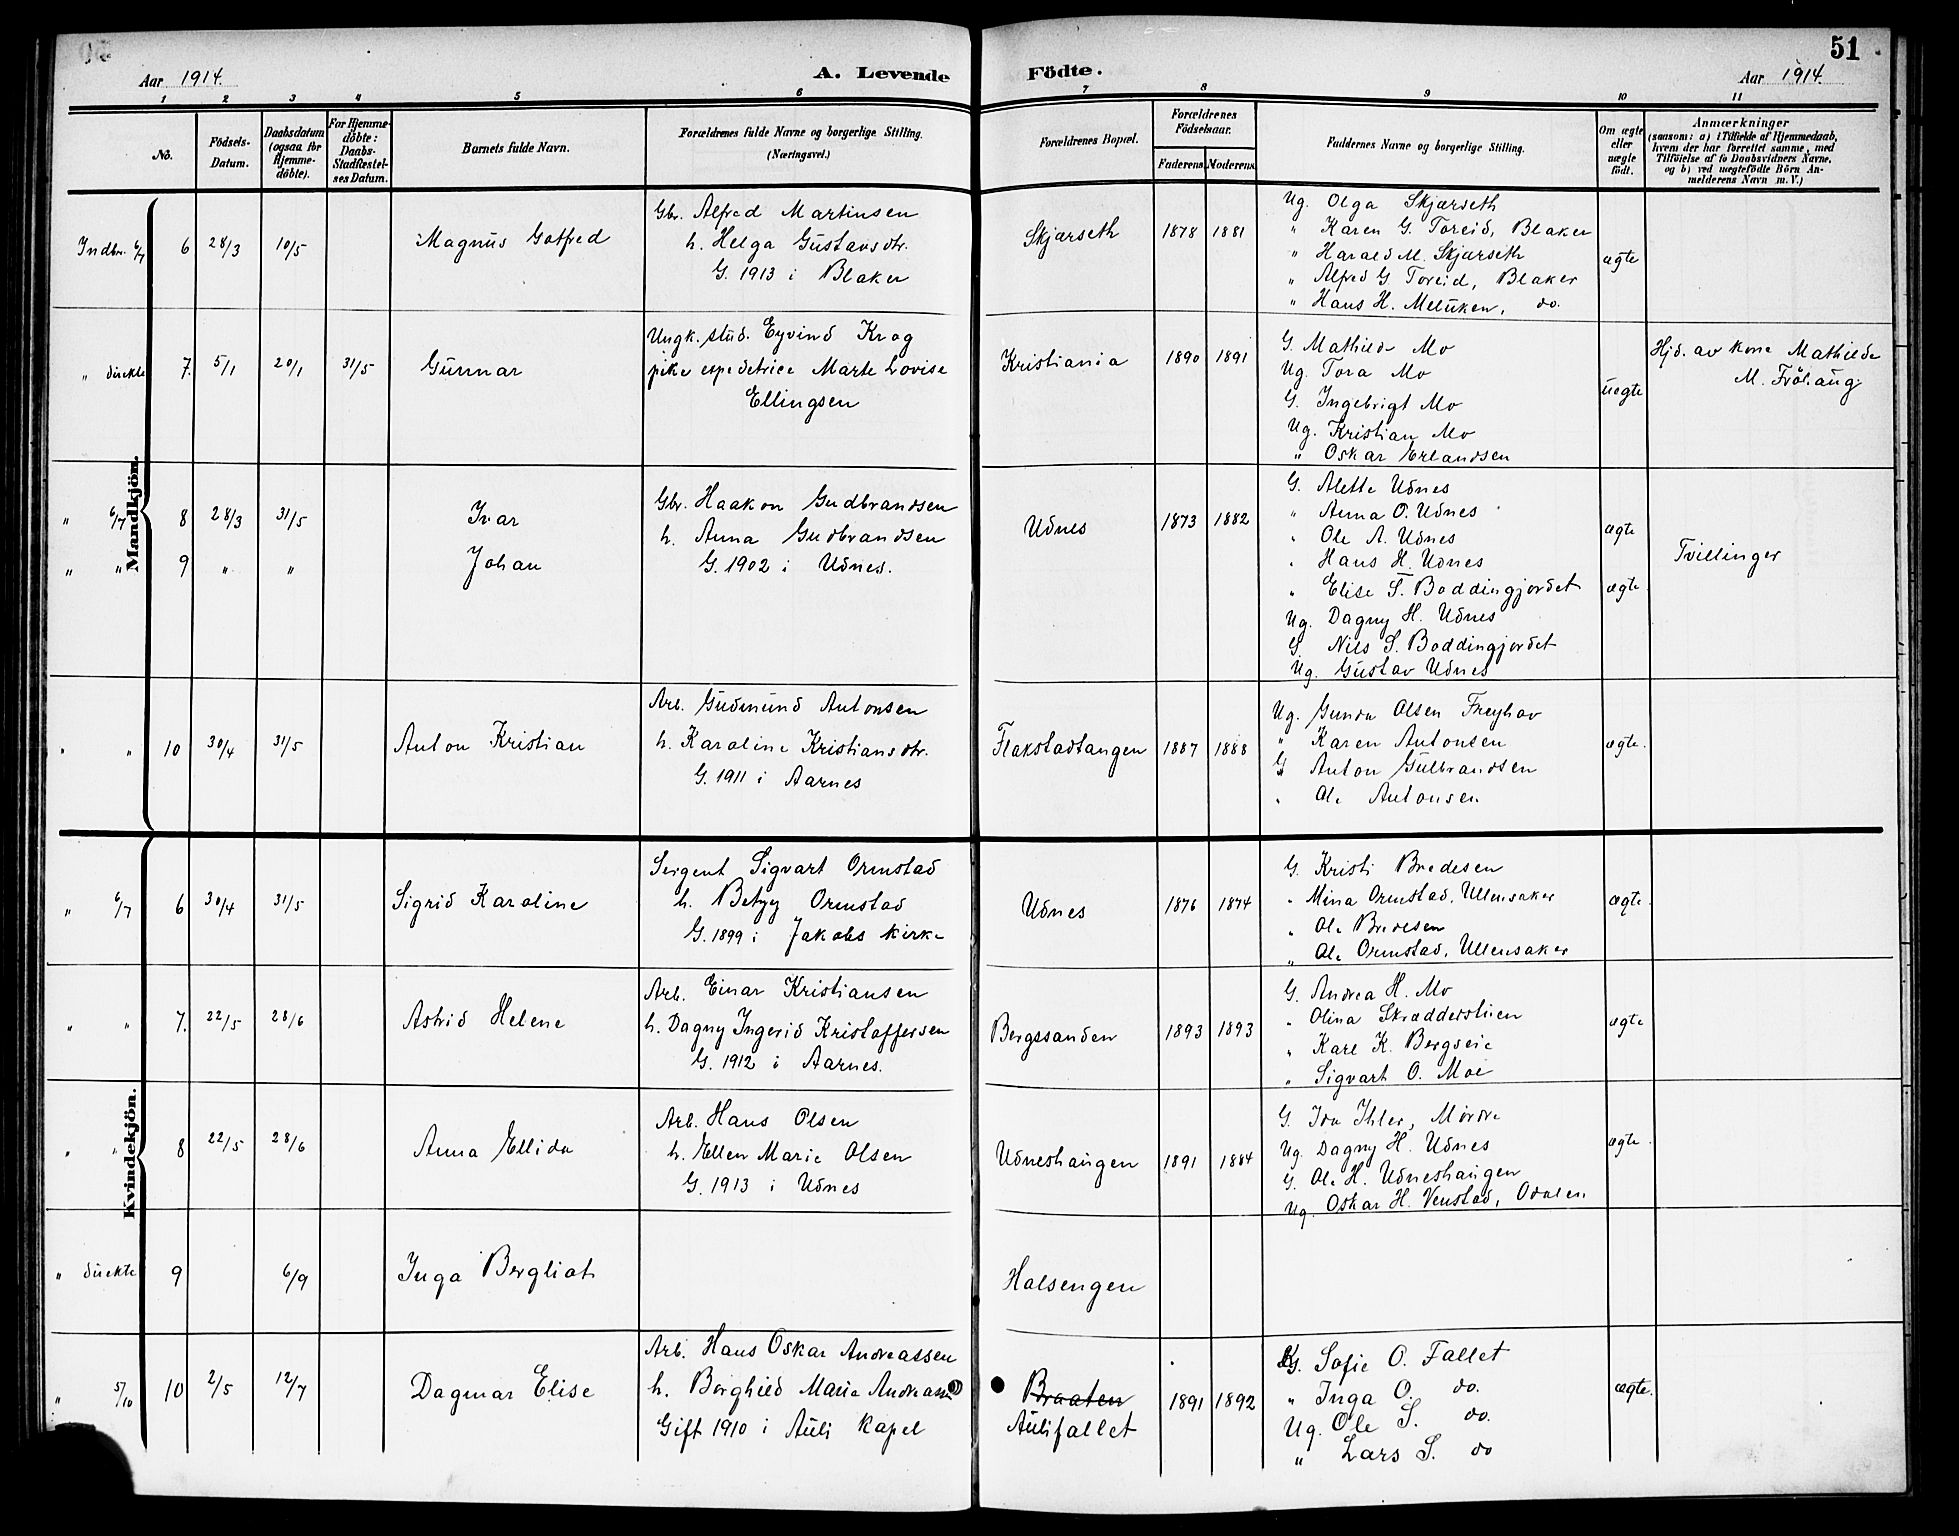 Aar 1914.
A. Levende
Födte.
Aar 1914.
51
1 2 3 4 5 6 7 8 9 10 11
No.
Födsels-
Datum.
Daabsdatum
(ogsaa for
Hjemme-
döbte).
For Hjemme-
döbte:
Daabs-
Stadfæstel-
ses Datum.
Barnets fulde Navn.
Forældrenes fulde Navne og borgerlige Stilling.
(Næringsvei.)
Forældrenes Bopæl.
Forældrenes
Födselsaar.
Faderens Moderens
Faddernes Navne og borgerlige Stilling.
Om ægte
eller
uægte
födt.
Anmærkninger
(saasom: a) i Tilfælde af Hjemmedaab,
hvem der har forrettet samme, med
Tilföielse af to Daabsvidners Navne,
og b) ved uægtefödte Börn An-
melderens Navn m. V.)
Mandkjön.
Indbr. 6/7 6 28/3 10/5
Magnus Gotfred
Gbr. Alfred Martinsen
h. Helga Gustavsdtr.
G. 1913 i Blaker
Skjærseth 1878 1881
Ug. Olga Skjærseth
" Karen G. Toreid, Blaker
" Harald M. Skjærseth
" Alfred G Toreid, Blaker
" Hans H. Melüken, do.
ægte
" direkte 7. 5/1 20/1 31/5
Gunnar
Ungk. stud. Eyvind Krog
pike expedetrice Marte Lovise
Ellingsen
Kristiania 1890 1891
G. Mathilde Mo
Ug. Tora Mo
G. Ingebrigt Mo
Ug. Kristian Mo
" Oskar Erlandsen
uegte
Hjd. av kone Mathilde
M. Fröhaug
" 6/7 8 28/3 31/5
Ivar
" " 9 " "
Johan
Gbr. Haakon Gudbrandsen
h. Anna Gudbrandsen
G. 1902 i Udnes.
Udnes 1873 1882
G. Alette Udnes
" Anna O. Udnes
" Ole A. Udnes
" Hans H. Udnes
" Elise S. Boddingjordet
Ug. Dagny H. Udnes
G. Nils S. Boddingjordet
Ug. Gustav Udnes
ægte
ægte.
Tvillinger
" " 10 30/4 31/5
Anton Kristian
Arb. Gudmund Antonsen
h. Karoline Kristiansdtr.
G. 1911 i Aarnes
Flakstadtangen 1887 1888
Ug. Gunda Olsen Freyhov
" Karen Antonsen
G Anton Gulbrandsen
" Ole Antonsen
ægte.
Kvindekjön.
" 6/7 6 30/4 31/5
Sigrid Karoline
Sergent Sigvart Ormstad
h. Betzy Ormstad
G. 1899 i Jakobs kirke
Udnes 1876 1874
G. Kristi Bredesen
" Mina Ormstad, Ullensaker
" Ole Bredesen
" Ole Ormstad, Ullensaker
ægte.
" " 7. 22/5 28/6
Astrid Helene
Arb. Einar Kristiansen
h. Dagny Ingerid Kristoffersen
G. 1912 i Aarnes.
Bergssanden 1893 1893
G. Andrea H. Mo
" Olina Skrædderstuen
" Karl K. Bergseie
" Sigvart O. Moe
ægte
" " 8 22/5 28/6
Anna Ellida
Arb. Hans Olsen
h. Ellen Marie Olsen
G. 1913 i Udnes
Udneshaugen 1891 1884
G. Ida Ihler, Mordre
Ug. Dagny H. Udnes
G. Ole H. Udneshaugen
Ug. Oskar H. Venstad, Odalen
ægte.
" direkte 9 6/9
Inga Bergliot
Halsengen
" 5/10 10 2/5 12/7
Dagmar Elise
Arb. Hans Oskar Andreassen
h. Borghild Marie
Gift 1910 i Auli kapel
Braaten
Aulifallet
1891 1892
G. Sofie O. Fallet
" Inga O. do.
Ug. Ole S. do.
" Lars S. do
ægte.